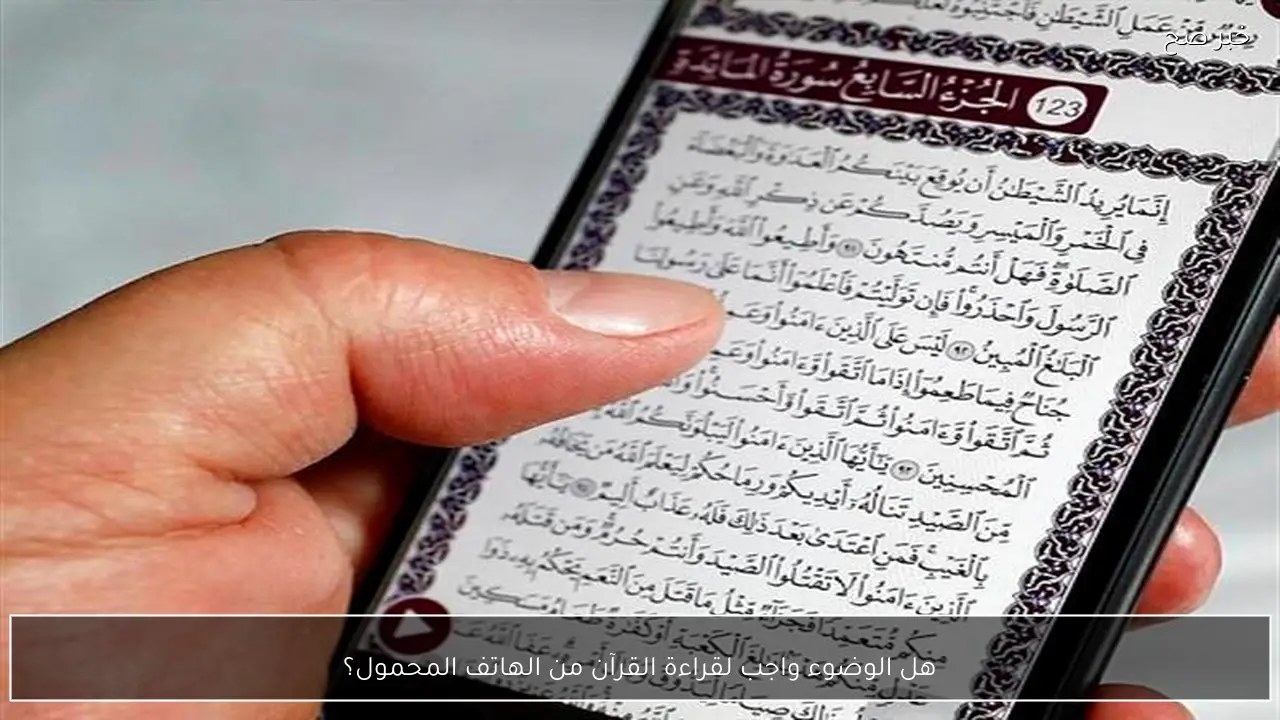 عَمَلِ الشَّيْطَانِ فَاجْتَنِبُوهُ
خبر صح
123 الجُزْءُ السَّابِعُ سُورَةُ المَائِدَةِ
إِنَّمَا يُرِيدُ الشَّيْطَانُ أَن يُوقِعَ بَيْنَكُمُ الْعَدَاوَةَ وَالْبَغْضَاءَ
فِي الْخَمْرِ وَالْمَيْسِرِ وَيَصُدَّكُمْ عَن ذِكْرِ اللَّهِ وَعَنِ
الصَّلَوٰةِ فَهَلْ أَنتُم مُّنتَهُونَ ٩١ وَأَطِيعُوا اللَّهَ وَأَطِيعُوا
الرَّسُولَ وَاحْذَرُوا فَإِن تَوَلَّيْتُمْ فَاعْلَمُوا أَنَّمَا عَلَىٰ رَسُولِنَا
الْبَلَاغُ الْمُبِينُ ٩٢ لَيْسَ عَلَى الَّذِينَ ءَامَنُوا وَعَمِ
جُنَاحٌ فِيمَا طَعِمُوا إِذَا مَا اتَّقَوا وَّءَامَنُوا وَعَمِ
ثُمَّ اتَّقَوا وَّءَامَنُوا ثُمَّ اتَّقَوا وَّأَحْسَنُوا
الْمُحْسِنِينَ ٩٣ يَٰٓأَيُّهَا الَّذِينَ ءَامَنُوا لَيَبْلُوَنَّكُمُ اللَّهُ
مِّنَ الصَّيْدِ تَنَالُهُ أَيْدِيكُمْ وَرِمَاحُكُمْ لِيَعْلَمَ اللَّهُ مَن يَخَافُهُ
بِالْغَيْبِ فَمَنِ اعْتَدَىٰ بَعْدَ ذَٰلِكَ فَلَهُ عَذَابٌ أَلِيمٌ ٩٤ يَٰٓأَيُّهَا
الَّذِينَ ءَامَنُوا لَا تَقْتُلُوا الصَّيْدَ وَأَنتُمْ حُرُمٌ وَمَن قَتَلَهُ
مِنكُم مُّتَعَمِّدًا فَجَزَاءٌ مِّثْلُ مَا قَتَلَ مِنَ النَّعَمِ يَحْكُمُ بِهِ ذَوَا
هل الوضوء واجب لقراءة القرآن من الهاتف المحمول؟